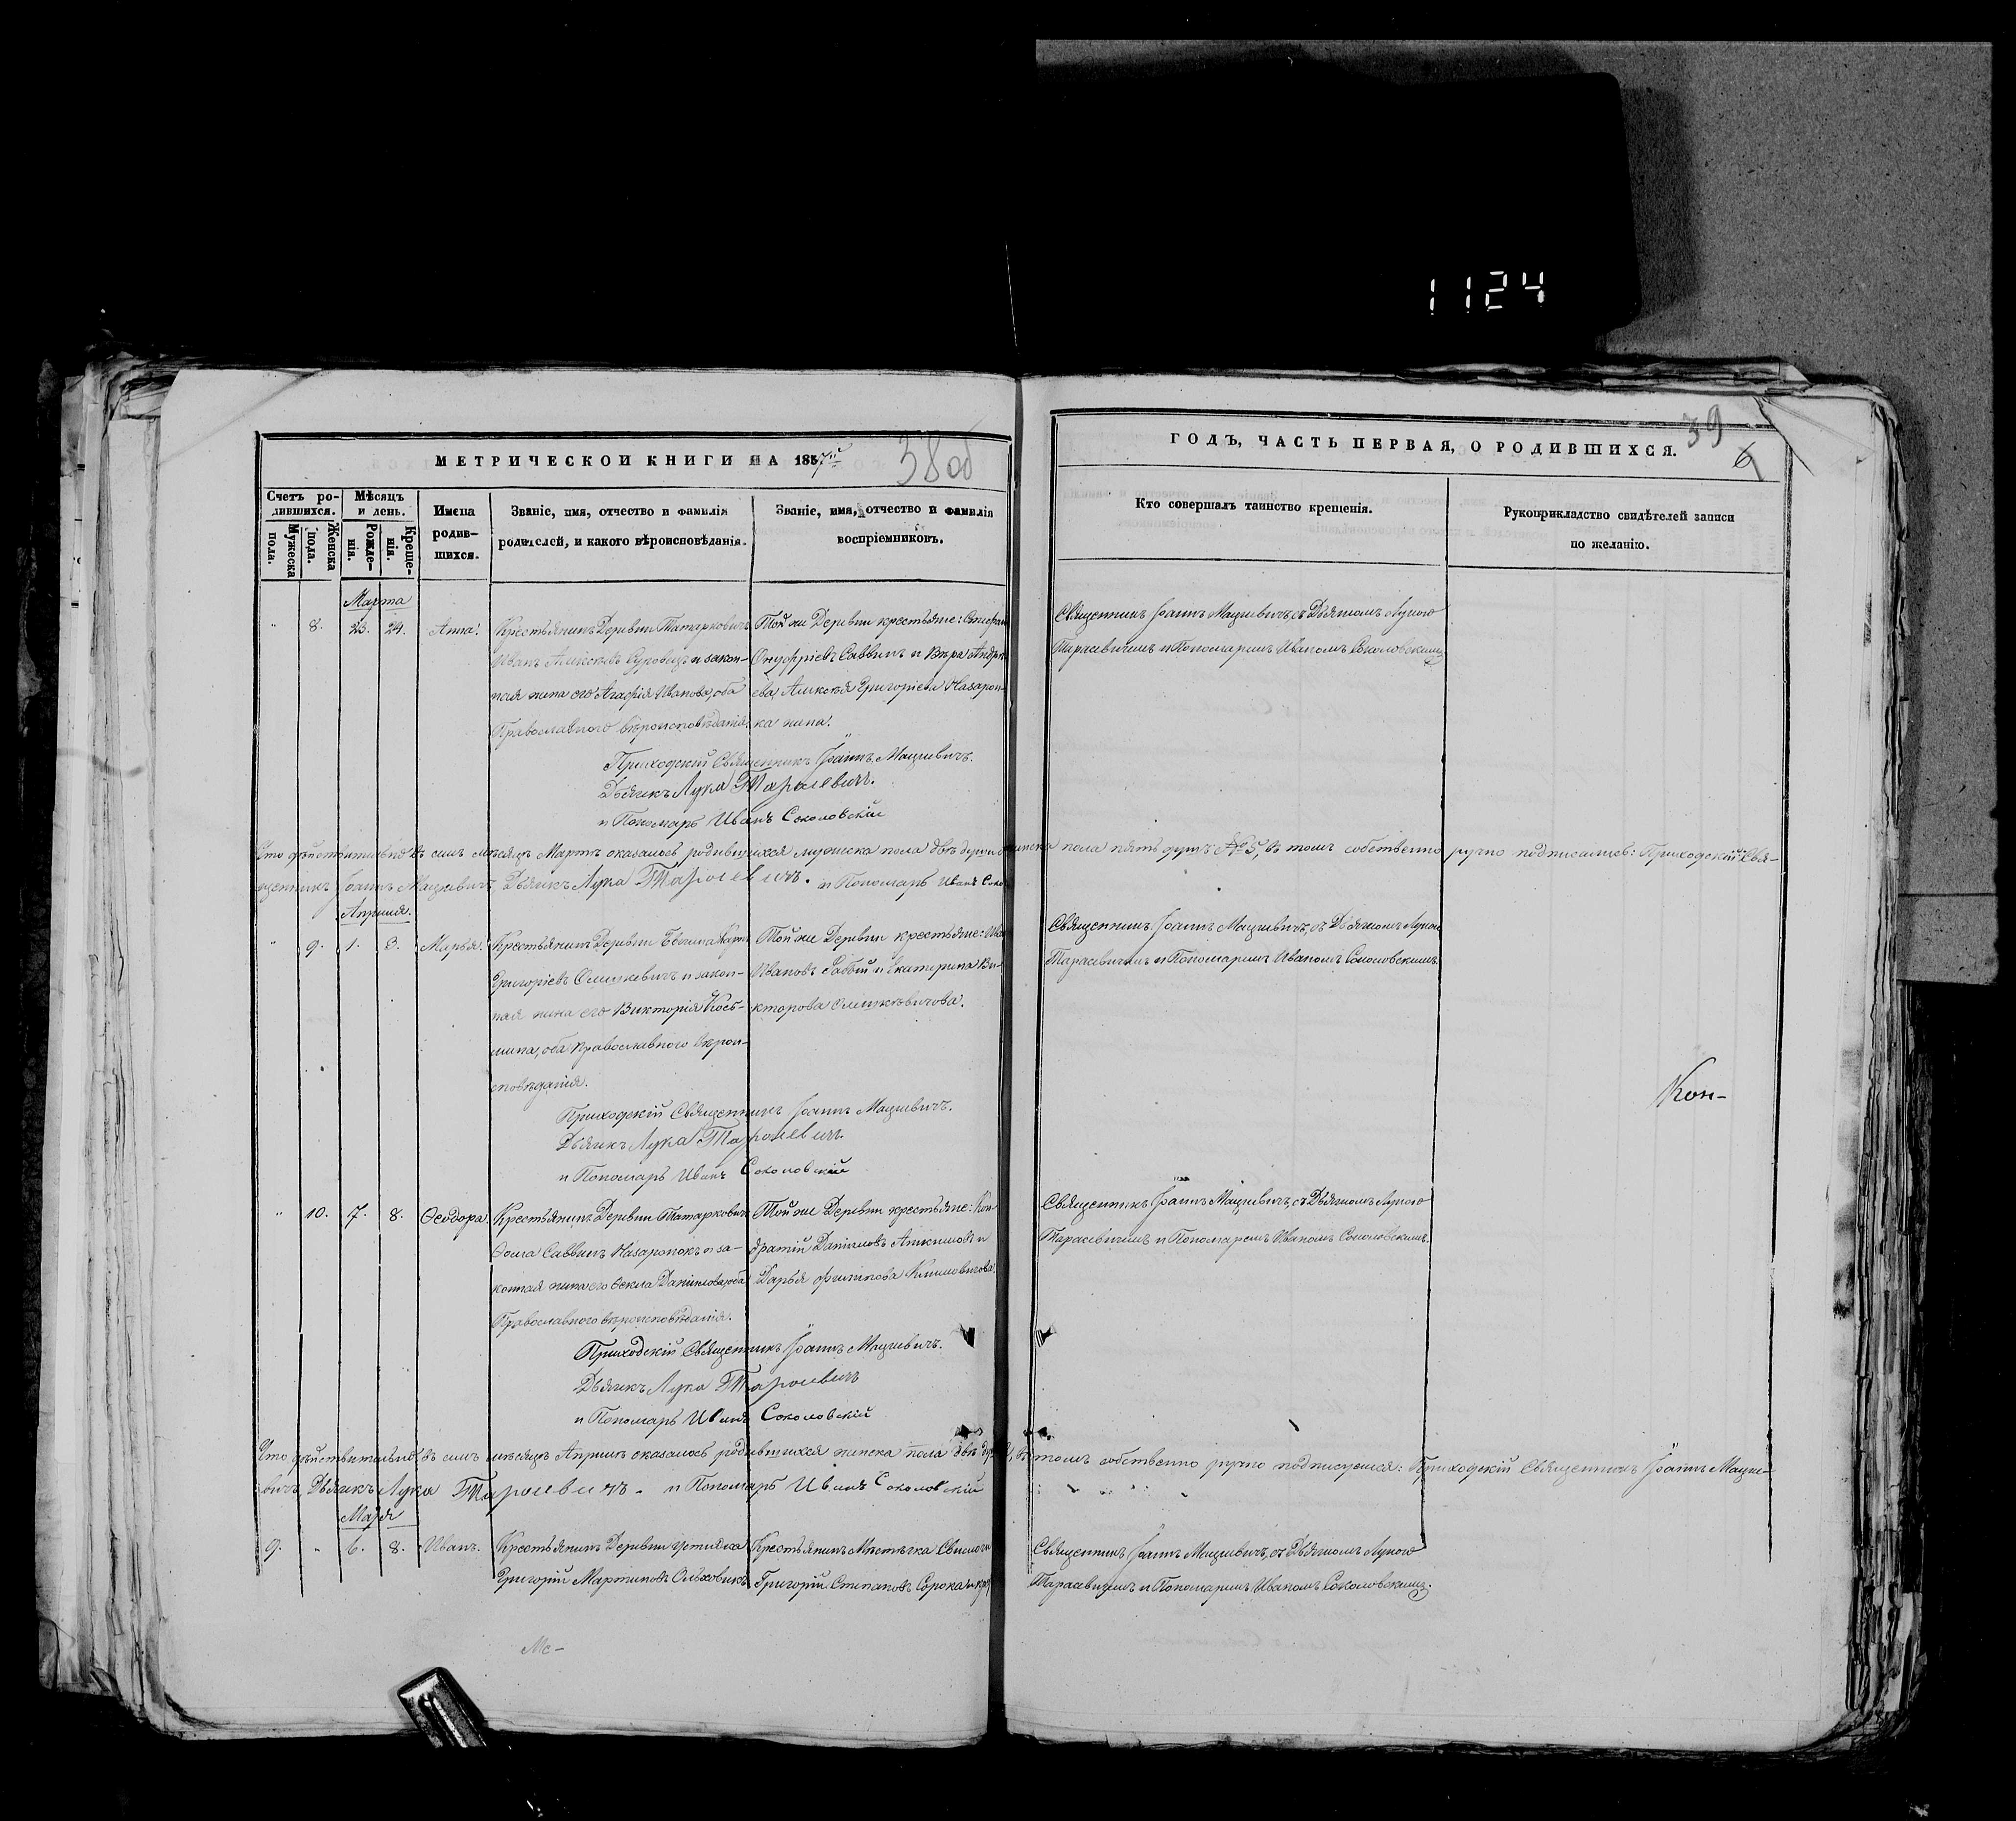 1124
МЕТРИЧЕСКОЙ КНИГИ НА 1857й
38об
Счетъ родившихся.
Мужеска пола.
Женска пола.
Мѣсяцъ и день.
Рожденія.
Крещенія.
Имена родившихся.
Званіе, имя, отчество и фамилія
родителей, и какого вѣроисповѣданія.
Званіе, имя, отчество и фамилія
воспріемниковъ.
Марта
" 8. 23. 24. Анна.
Крестьянинъ Деревни Татарковичъ
Иванъ Алексѣевъ Суровецъ и закон-
ная жена его Агафія Иванова, оба
Православного вѣроисповѣданія.
Той же Деревни крестьяне: Стефан
Онуфріевъ Саввинъ и Вѣра Андре-
ева, Алексѣя Григоріева Назарон-
ка жена.
Приходскій Священникъ Іоаннъ Мацкевичъ.
Дьячекъ Лука Тарасевичъ.
и Пономарь Иванъ Соколовскій
Что дѣйствительно въ семъ мѣсяцѣ Мартѣ оказалось родившихся мужеска пола двѣ души женска пола пять душъ № 5, въ томъ собственно ручно подписались: Приходскій Свя-
щенникъ Іоаннъ Мацкевичъ Дьячекъ Лука Тарасевичъ. и Пономарь Иванъ
Апрѣля.
" 9. 1. 3. Марья.
Крестьянинъ Деревни
Григоріевъ и закон-
ная жена его Викторія Кось-
мина, оба Православного вѣрои-
сповѣданія.
Той же Деревни крестьяне:
Ивановъ Рабый и Екатерина Ви-
кторова
Приходскій Священникъ Іоаннъ Мацкевичъ.
Дьячекъ Лука Тарасевичъ.
и Пономарь Иванъ Соколовскій
" 10. 7. 8. Ѳеодора.
Крестьянинъ Деревни Татарковичъ
Ѳома Саввинъ Назаронокъ и за-
конная жена его Ѳекла Даніилова, оба
Православного вѣроисповѣданія.
Той же Деревни крестьяне: Кон-
дратій Даніиловъ и
Дарья Филипова
Приходскій Священникъ Іоаннъ Мацкевичъ.
Дьячекъ Лука Тарасевичъ
и Пономарь Иванъ Соколовскій
Что дѣйствительно въ семъ мѣсяцѣ Апрѣлѣ оказалось родившихся женска пола двѣ въ томъ собственно ручно подписуемся: Приходскій Священникъ Іоаннъ Мацке-
вичъ, Дьячекъ Лука Тарасевичъ. и Пономарь Иванъ Соколовскій
Мая
9. " 6. 8. Иванъ.
Крестьянинъ Деревни Устижа
Григорій Мартиновъ Ольховикъ
Крестьянинъ Мѣстечка Свислочи
Григорій Степановъ Сорока и кре
Ме-
ГОДЪ, ЧАСТЬ ПЕРВАЯ, О РОДИВШИХСЯ.
39
6
Кто совершалъ таинство крещенія.
Рукоприкладство свидѣтелей записи
по желанію.
Священникъ Іоаннъ Мацкевичъ, съ Дьячкомъ Лукою
Тарасевичемъ и Пономаремъ Иваномъ Соколовскимъ
Священникъ Іоаннъ Мацкевичъ, съ Дьячкомъ Лукою
Тарасевичемъ и Пономаремъ Иваномъ Соколовскимъ.
Кон-
Священникъ Іоаннъ Мацкевичъ, съ Дьячкомъ Лукою
Тарасевичемъ и Пономаремъ Иваномъ Соколовскимъ.
Священникъ Іоаннъ Мацкевичъ, съ Дьячкомъ Лукою
Тарасевичемъ и Пономаремъ Иваномъ Соколовскимъ.